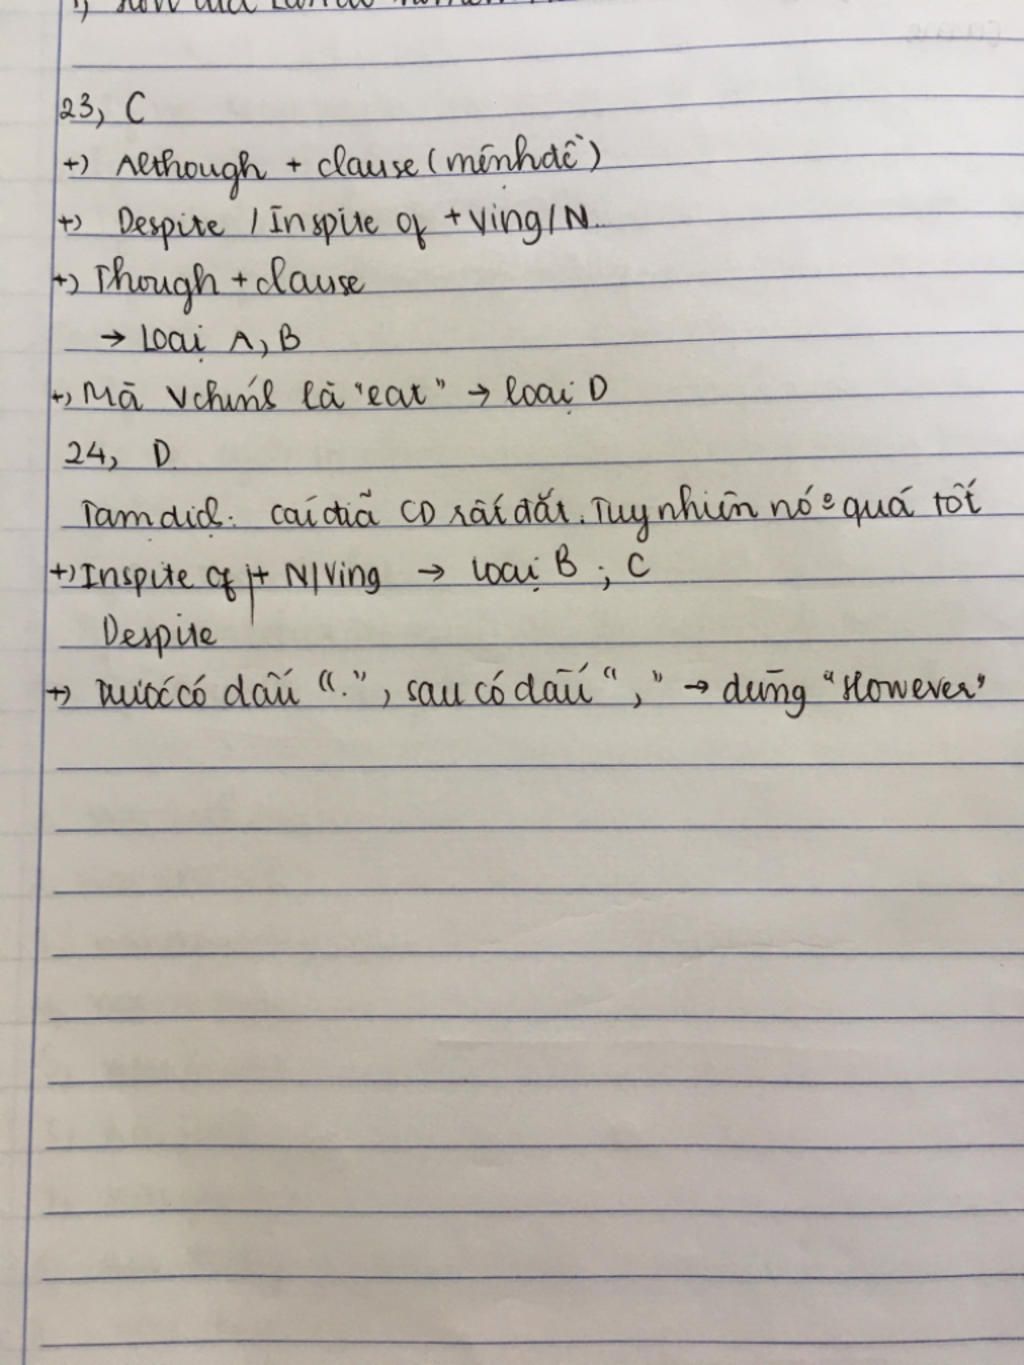 23, C
+) Although + clause (mệnh đề)
+) Despite / Inspite of + Ving/N.
+) Though + clause
→ Loại A, B
+) Mà V chính là "eat" → loại D
24, D
Tạm dịch: Cái đĩa CD rất đắt. Tuy nhiên nó quá tốt
+) Inspite of + N/Ving → loại B ; C
Despite
+) trước có dấu ".", sau có dấu "," → dùng "However"